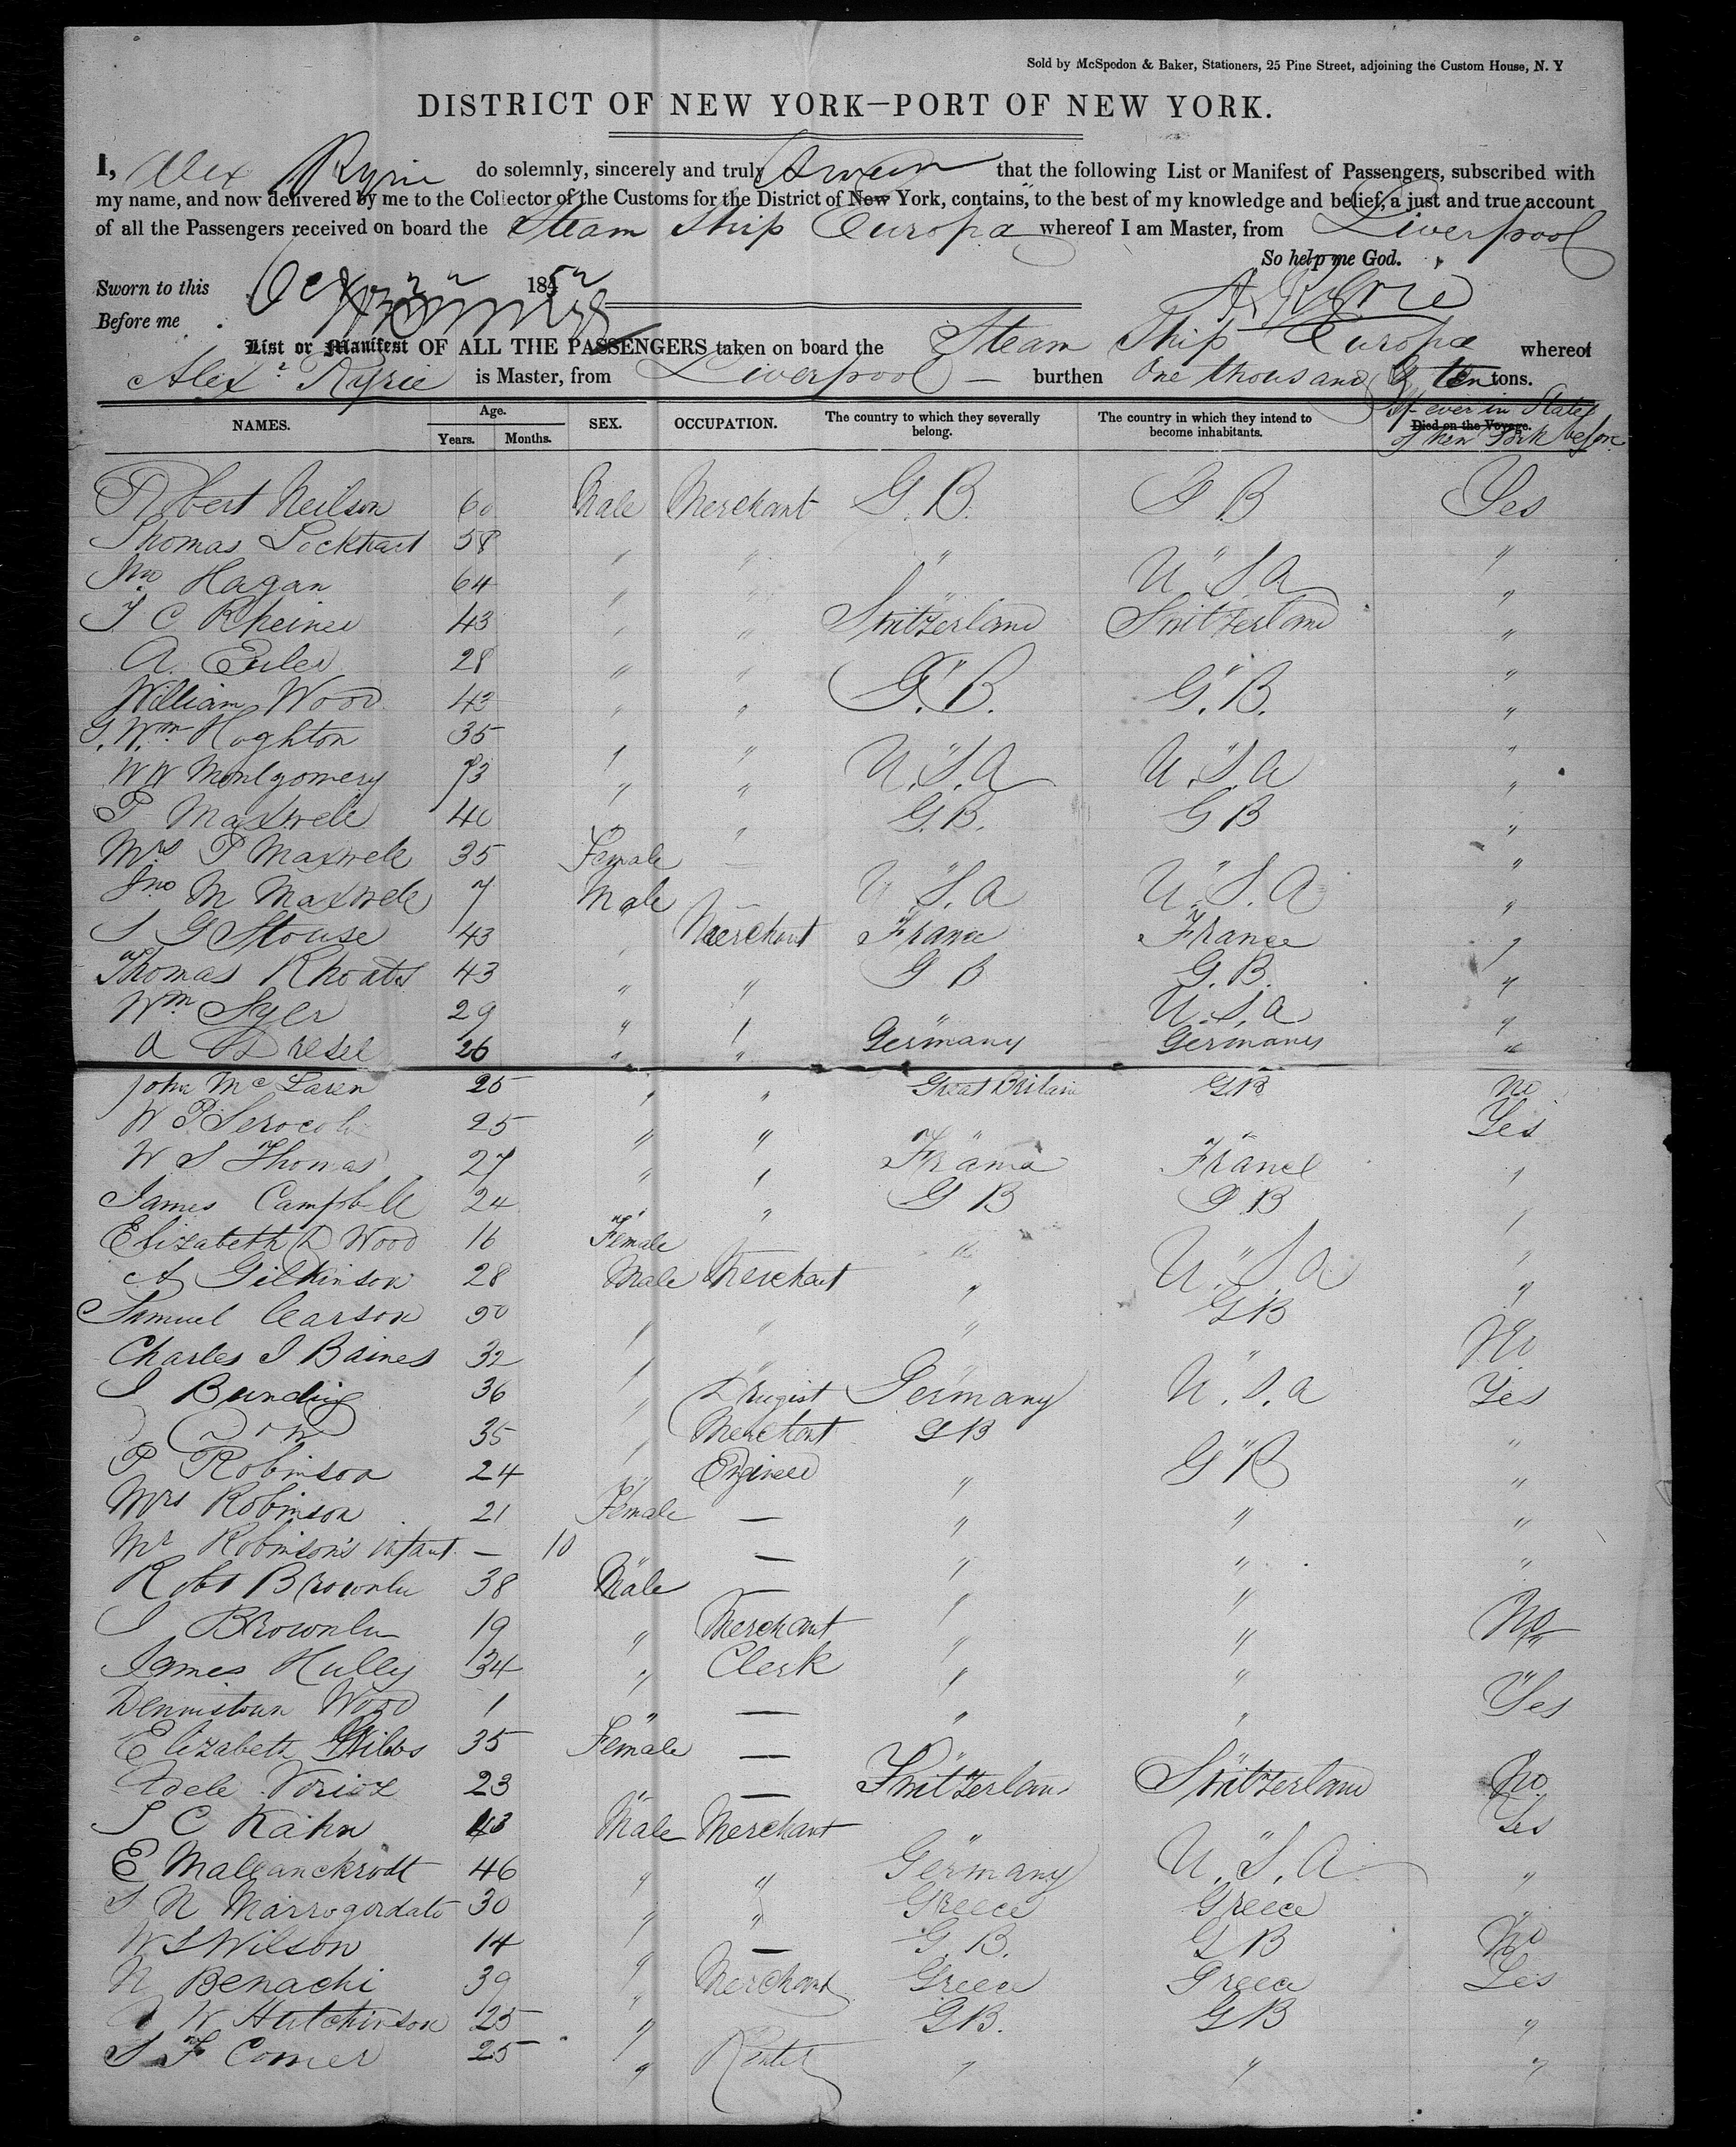 Sold by McSpedon & Baker, Stationers, 25 Pine Street, adjoining the Custom House, N. Y
DISTRICT OF NEW YORK—PORT OF NEW YORK.
I, Alex Ryrie do solemnly, sincerely and truly Swear that the following List or Manifest of Passengers, subscribed with
my name, and now delivered by me to the Collector of the Customs for the District of New York, contains, to the best of my knowledge and belief, a just and true account
of all the Passengers received on board the Steam Ship Europa whereof I am Master, from Liverpool
So help me God.
Sworn to this Oct 22 1852
A. Ryrie
Before me
List or Manifest OF ALL THE PASSENGERS taken on board the Steam Ship Europa whereof
Alexr Ryrie is Master, from Liverpool — burthen One thousand & ten tons.
NAMES. Age. Years. Months. SEX. OCCUPATION. The country to which they severally belong. The country in which they intend to become inhabitants. Died on the Voyage. If ever in State of New York before
Robert Neilson 60 Male Merchant G. B. G B Yes
Thomas Lockhart 58 " " " " "
Jno Hagan 64 " " " U.S.A "
J C Rheiner 43 " " Switzerland Switzerland "
A. Euler 28 " " " " "
William Wood 43 " " G.B. G.B. "
G. Wm Hoghton 35 " " " " "
W W Montgomery 73 " " U.S.A U.S.A "
P Maxwell 40 " " G.B. G B "
Mrs P Maxwell 35 Female — " " "
Jno M Maxwell 7 Male — U.S.A U.S.A "
S G Stouse 43 " Merchant France France "
Thomas Rhoads 43 " " G B G.B. "
Wm Syer 29 " " " U.S.A "
A Dresel 26 " " Germany Germany "
John McLaren 25 " " Great Britain GB No
W P Serocold 25 " " " " Yes
W S Thomas 27 " " France France "
James Campbell 24 " " G B G B "
Elizabeth D Wood 16 Female " " "
A Gilkinson 28 Male Merchant " U.S.A "
Samuel Carson 50 " " " GB
Charles I Baines 32 " " " " No
I Bunding 36 " Drugist Germany U.S.A Yes
35 " Merchant GB " "
P Robinson 24 " Engineer " G B "
Mrs Robinson 21 Female — " " "
Mr Robinson's infant — 10 — " " "
Robt Brownlee 38 Male — " "
I Brownlee 19 " Merchant " " No
James Hulley 34 " Clerk " " "
Dennistoun Wood 1 " — " " Yes
Elizabeth Gribbs 35 Female — " " "
Adele Vorioz 23 " — Switzerland Switzerland No
S C Kahn 43 Male Merchant " " Yes
E Mallanckrodt 46 " " Germany U.S.A "
S N Mavrogordato 30 " " Greece Greece "
W S Wilson 14 " — G.B. G B No
N Benachi 39 " Merchant Greece Greece Yes
W Hutchinson 25 " GB. GB "
S F Comer 25 " " " "